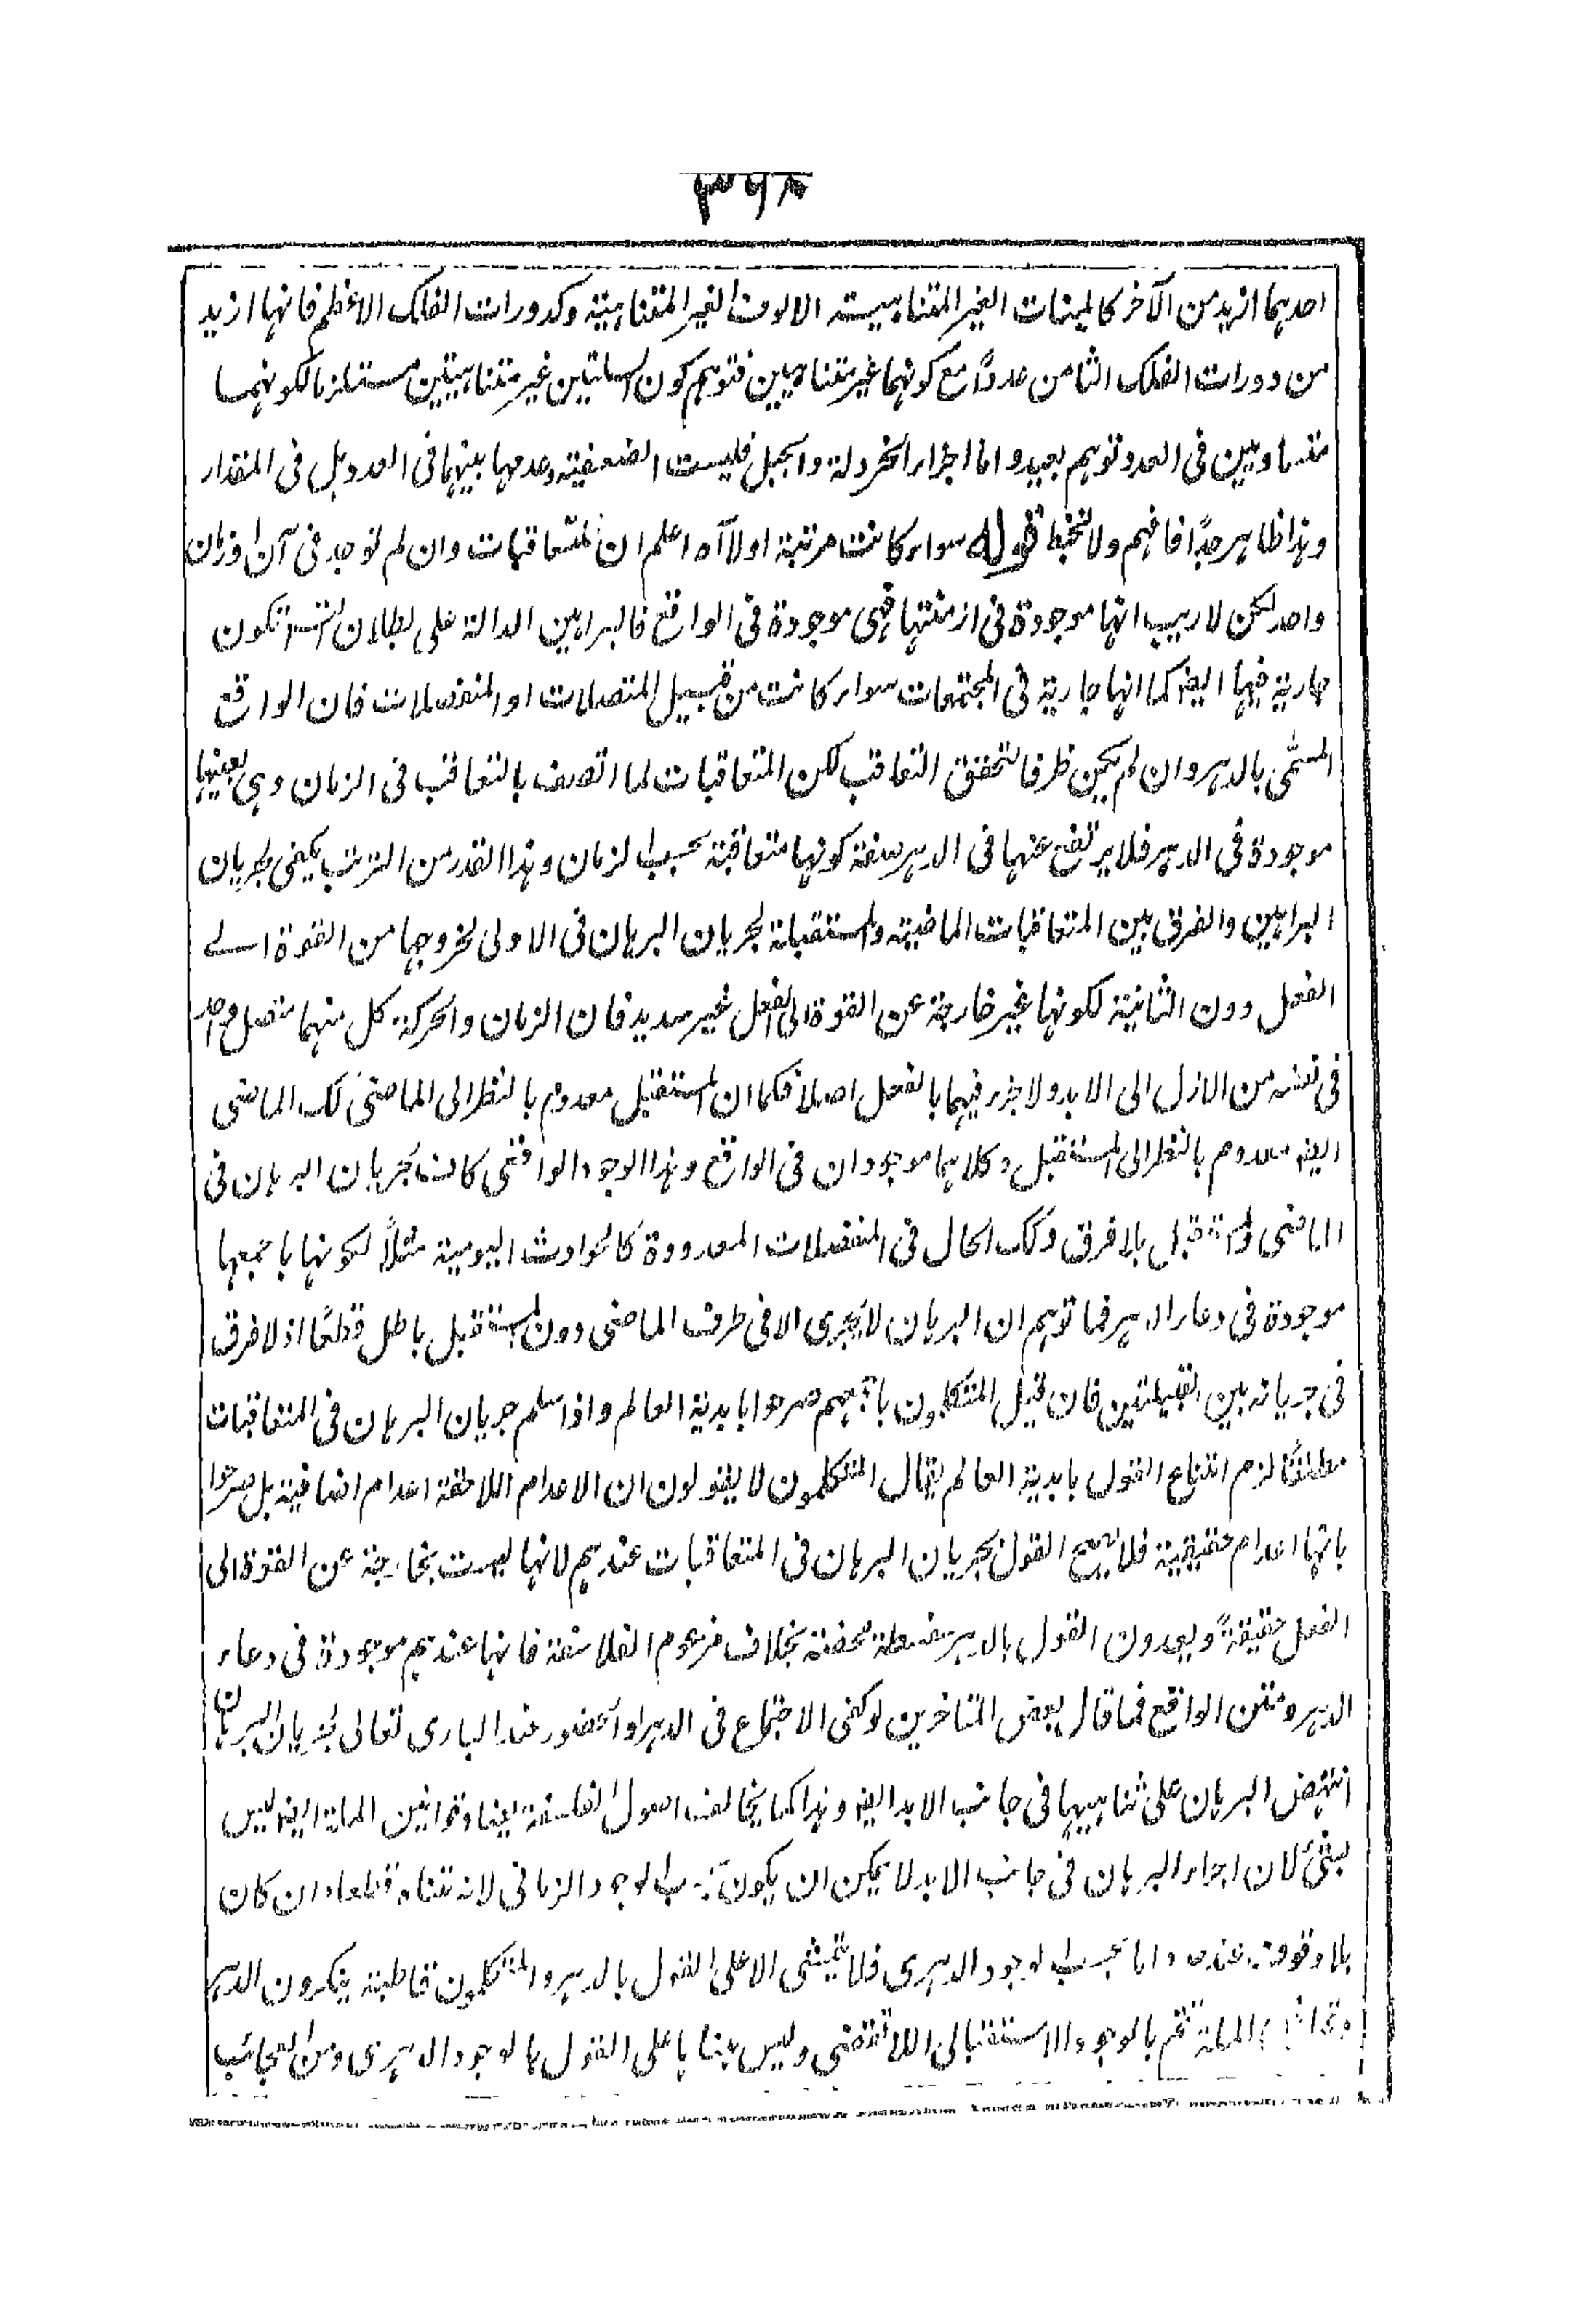 ۳۶۸
احدهما ازيد من الآخر كالمئات الغير المتناهية الالوف الغير المتناهية وكدورات الفلك الاعظم فانها ازيد
من دورات الفلك الثامن عددًا مع كونهما غير متناهيين فتوهم كون السلسلتين غير متناهيتين مستلزما لكونهما
متساويين في العدد توهم بعيد واما اجزاء الخردلة والجبل فليست الضعفية وعدمها بينهما في العدد بل في المقدار
وهذا ظاهر جدًا فافهم ولا تخبط قوله سواء كانت مرتبة اولا آه اعلم ان المتعاقبات وان لم توجد في آن او زمان
واحد لكن لا ريب انها موجودة في ازمنتها فهي موجودة في الواقع فالبراهين الدالة على بطلان التس تكون
جارية فيها ايضا كما انها جارية في المجتمعات سواء كانت من قبيل المتصلات او المنفصلات فان الواقع
المسمّى بالدهر وان لم يكن ظرفا لتحقق التعاقب لكن المتعاقبات لما اتصف بالتعاقب في الزمان وهي بعينها
موجودة في الدهر فلا يرتفع عنها في الدهر صفة كونها متعاقبة بحسب الزمان وهذا القدر من الترتب يكفي لجريان
البراهين والفرق بين المتعاقبات الماضية والمستقبلة لجريان البرهان في الاولى لخروجها من القوة الى
الفعل دون الثانية لكونها غير خارجة عن القوة الى الفعل غير سديد فان الزمان والحركة كل منهما متصل واحد
في نفسه من الازل الى الابد ولا جزء فيهما بالفعل اصلا فكما ان المستقبل معدوم بالنظر الى الماضي كك الماضي
ايضا معدوم بالنظر الى المستقبل وكلاهما موجودان في الواقع وهذا الوجود الواقعي كاف لجريان البرهان في
الماضي والمستقبل بلا فرق وكك الحال في المنفصلات المعدودة كالحوادث اليومية مثلًا لكونها باجمعها
موجودة في دعاء الدهر فما توهم ان البرهان لا يجرى الا في طرف الماضي دون المستقبل باطل قطعًا اذ لا فرق
في جريانه بين القبيلتين فان قيل المتكلمون باجمعهم صرحوا بابدية العالم واذا سلم جريان البرهان في المتعاقبات
مطلقًا لزم امتناع القول بابدية العالم يقال المتكلمون لا يقولون ان الاعدام اللاحقة اعدام اضافية بل صرحوا
بانها اعدام حقيقية فلا يصح القول بجريان البرهان في المتعاقبات عندهم لانها ليست بخارجة عن القوة الى
الفعل حقيقةً ويعدون القول بالدهر سفسطة محضة بخلاف مزعوم الفلاسفة فانها عندهم موجودة في دعاء
الدهر ومتن الواقع فما قال بعض المتاخرين لو كفى الاجتماع في الدهر او الحضور عند البارى تعالى لجريان البرهان
انتهض البرهان على تناهيها في جانب الابد ايضا وهذا كما يخالف اصول الفلسفة يضاد قوانين الملة ايضا ليس
بشئ لان اجراء البرهان في جانب الابد لا يمكن ان يكون بحسب الوجود الزماني لانه متناه قطعا وان كان
بلا وقوف عند حد واما بحسب الوجود الدهري فلا يتمشى الا على القول بالدهر والمتكلمون قاطبة ينكرون الدهر
وقوانين الملة تتم بالوجود الاستقبالي اللاتقفي وليس بناها على القول بالوجود الدهري ومن العجائب